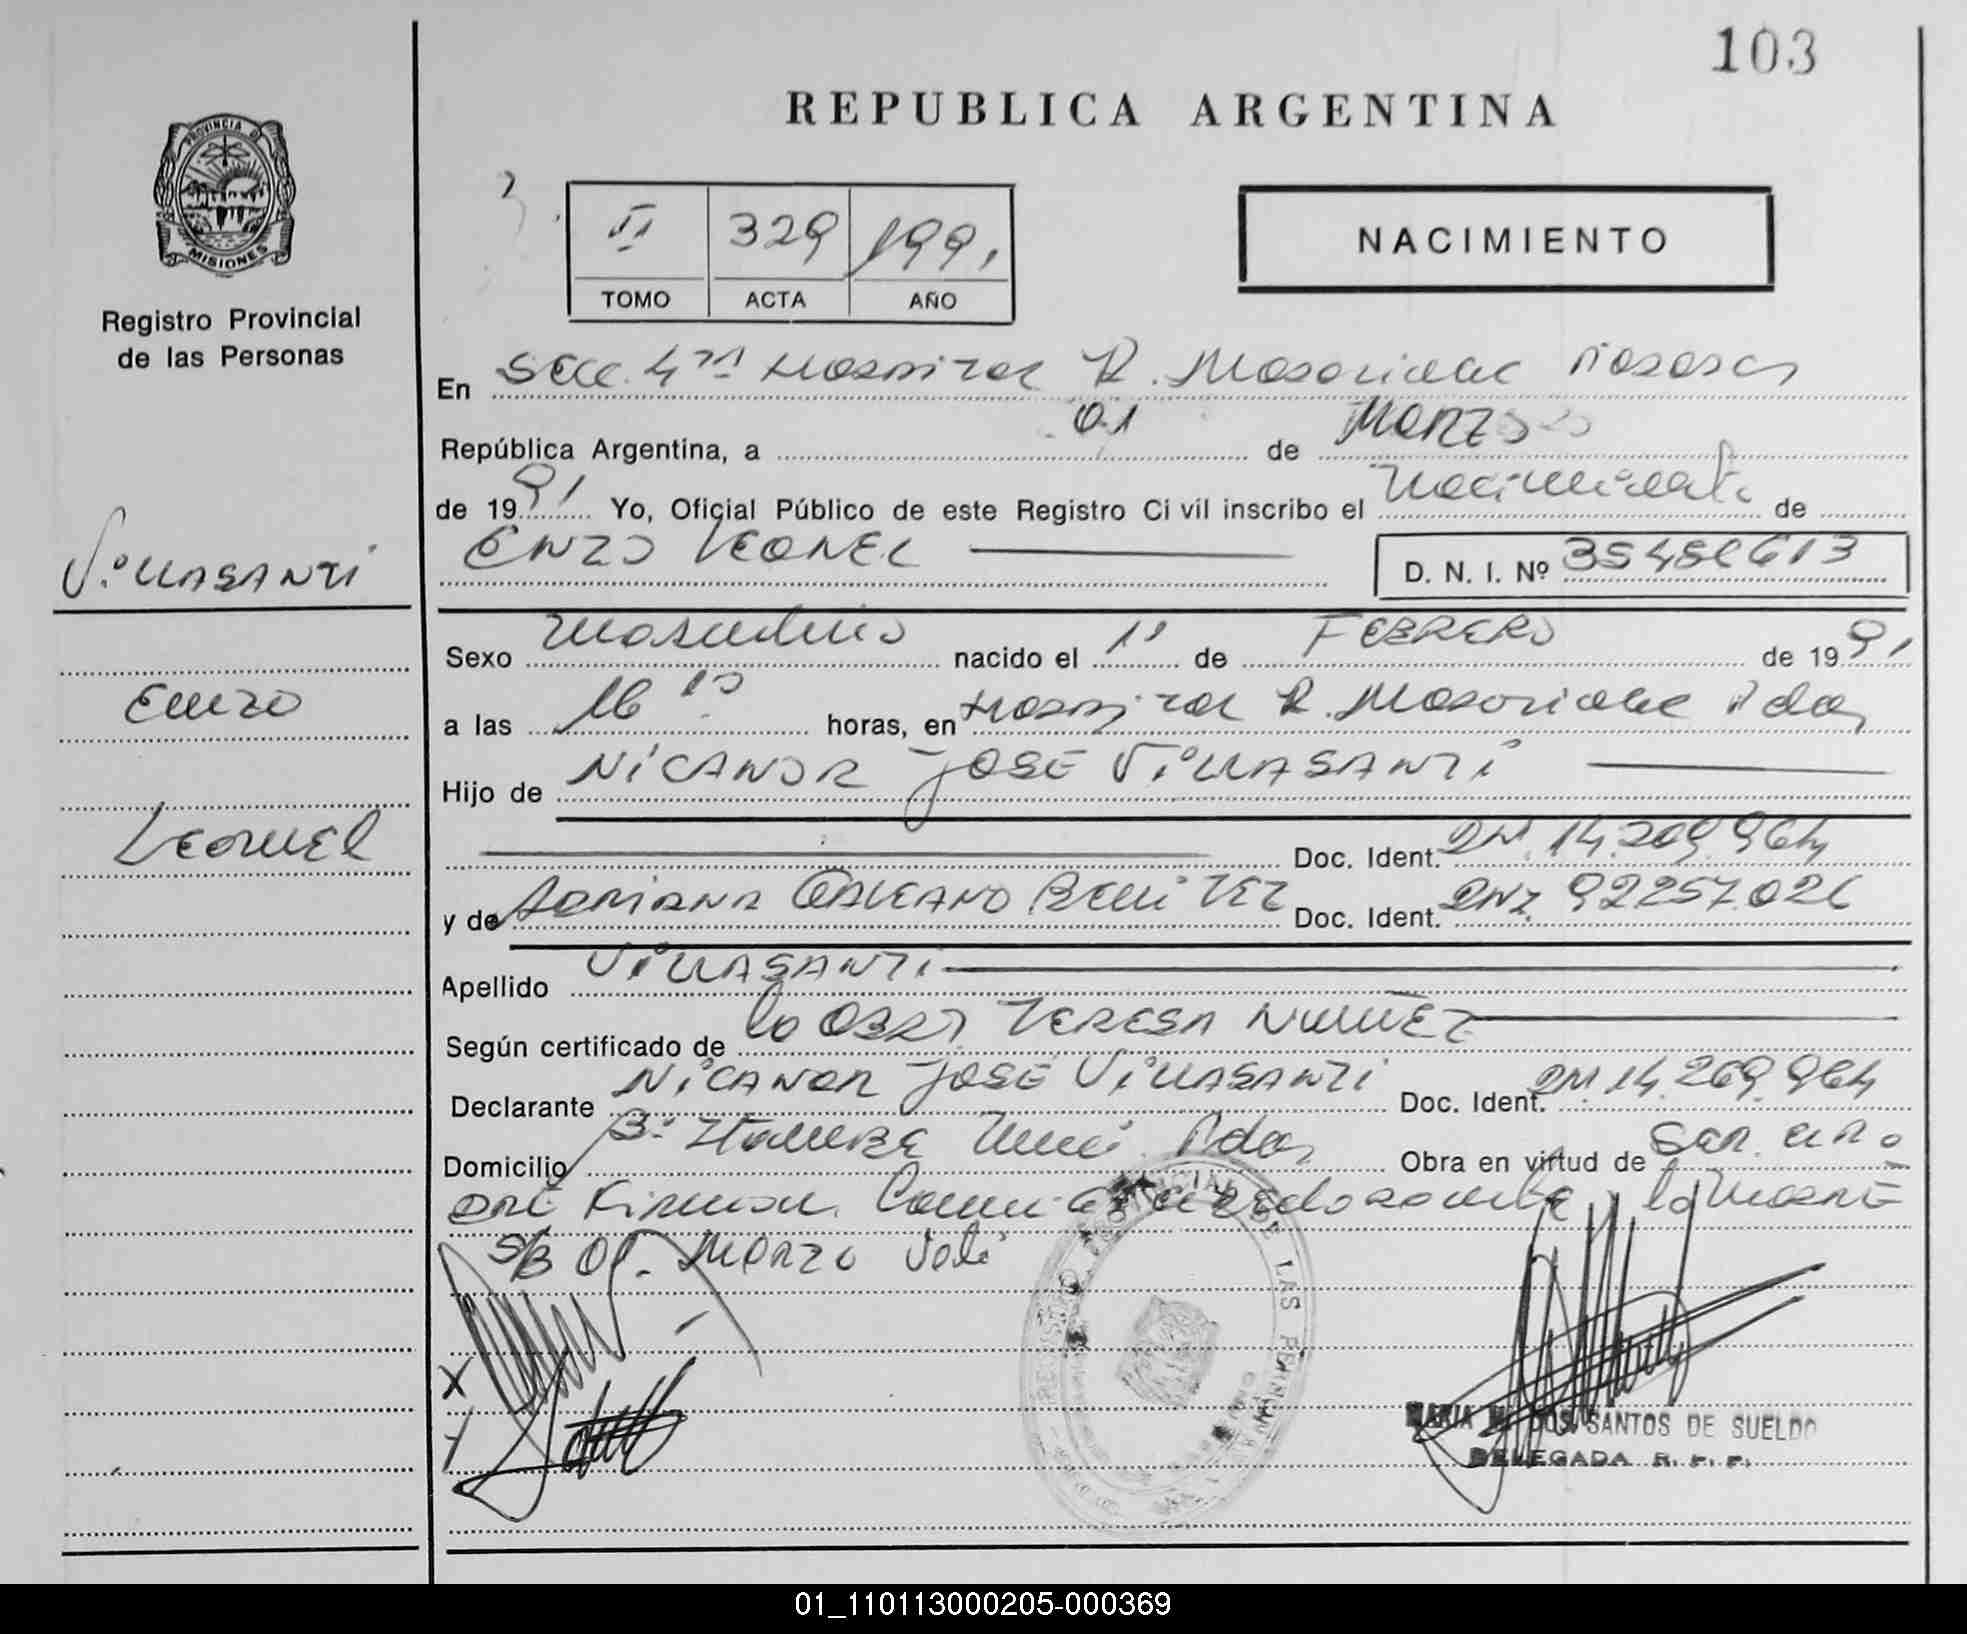 103
REPUBLICA ARGENTINA
PROVINCIA DE
MISIONES
Registro Provincial
de las Personas
II 329 1991
TOMO ACTA AÑO
NACIMIENTO
En Secc. 4ta Hospital R. Madariaga Posadas
República Argentina, a 01 de Marzo
de 1991 Yo, Oficial Público de este Registro Civil inscribo el Nacimiento de
ENZO LEONEL D. N. I. Nº
VILLASANTI
Enzo
Leonel
Sexo Masculino nacido el 1º de FEBRERO de 1991
a las 16 horas, en Hospital R. Madariaga Pdas
Hijo de NICANOR JOSE VILLASANTI
Doc. Ident. DNI 14.269.964
y de ADRIANA GALEANO BENITEZ Doc. Ident. DNI 92257.026
Apellido VILLASANTI
Según certificado de la OBST TERESA NUÑEZ
Declarante NICANOR JOSE VILLASANTI Doc. Ident. DNI 14.269.964
Domicilio Bº Itaembe Mini Pdas Obra en virtud de
la Madre
S/B 01 Marzo Vale
X
MARIA DOS SANTOS DE SUELDO
DELEGADA R. P. P.
01_110113000205-000369